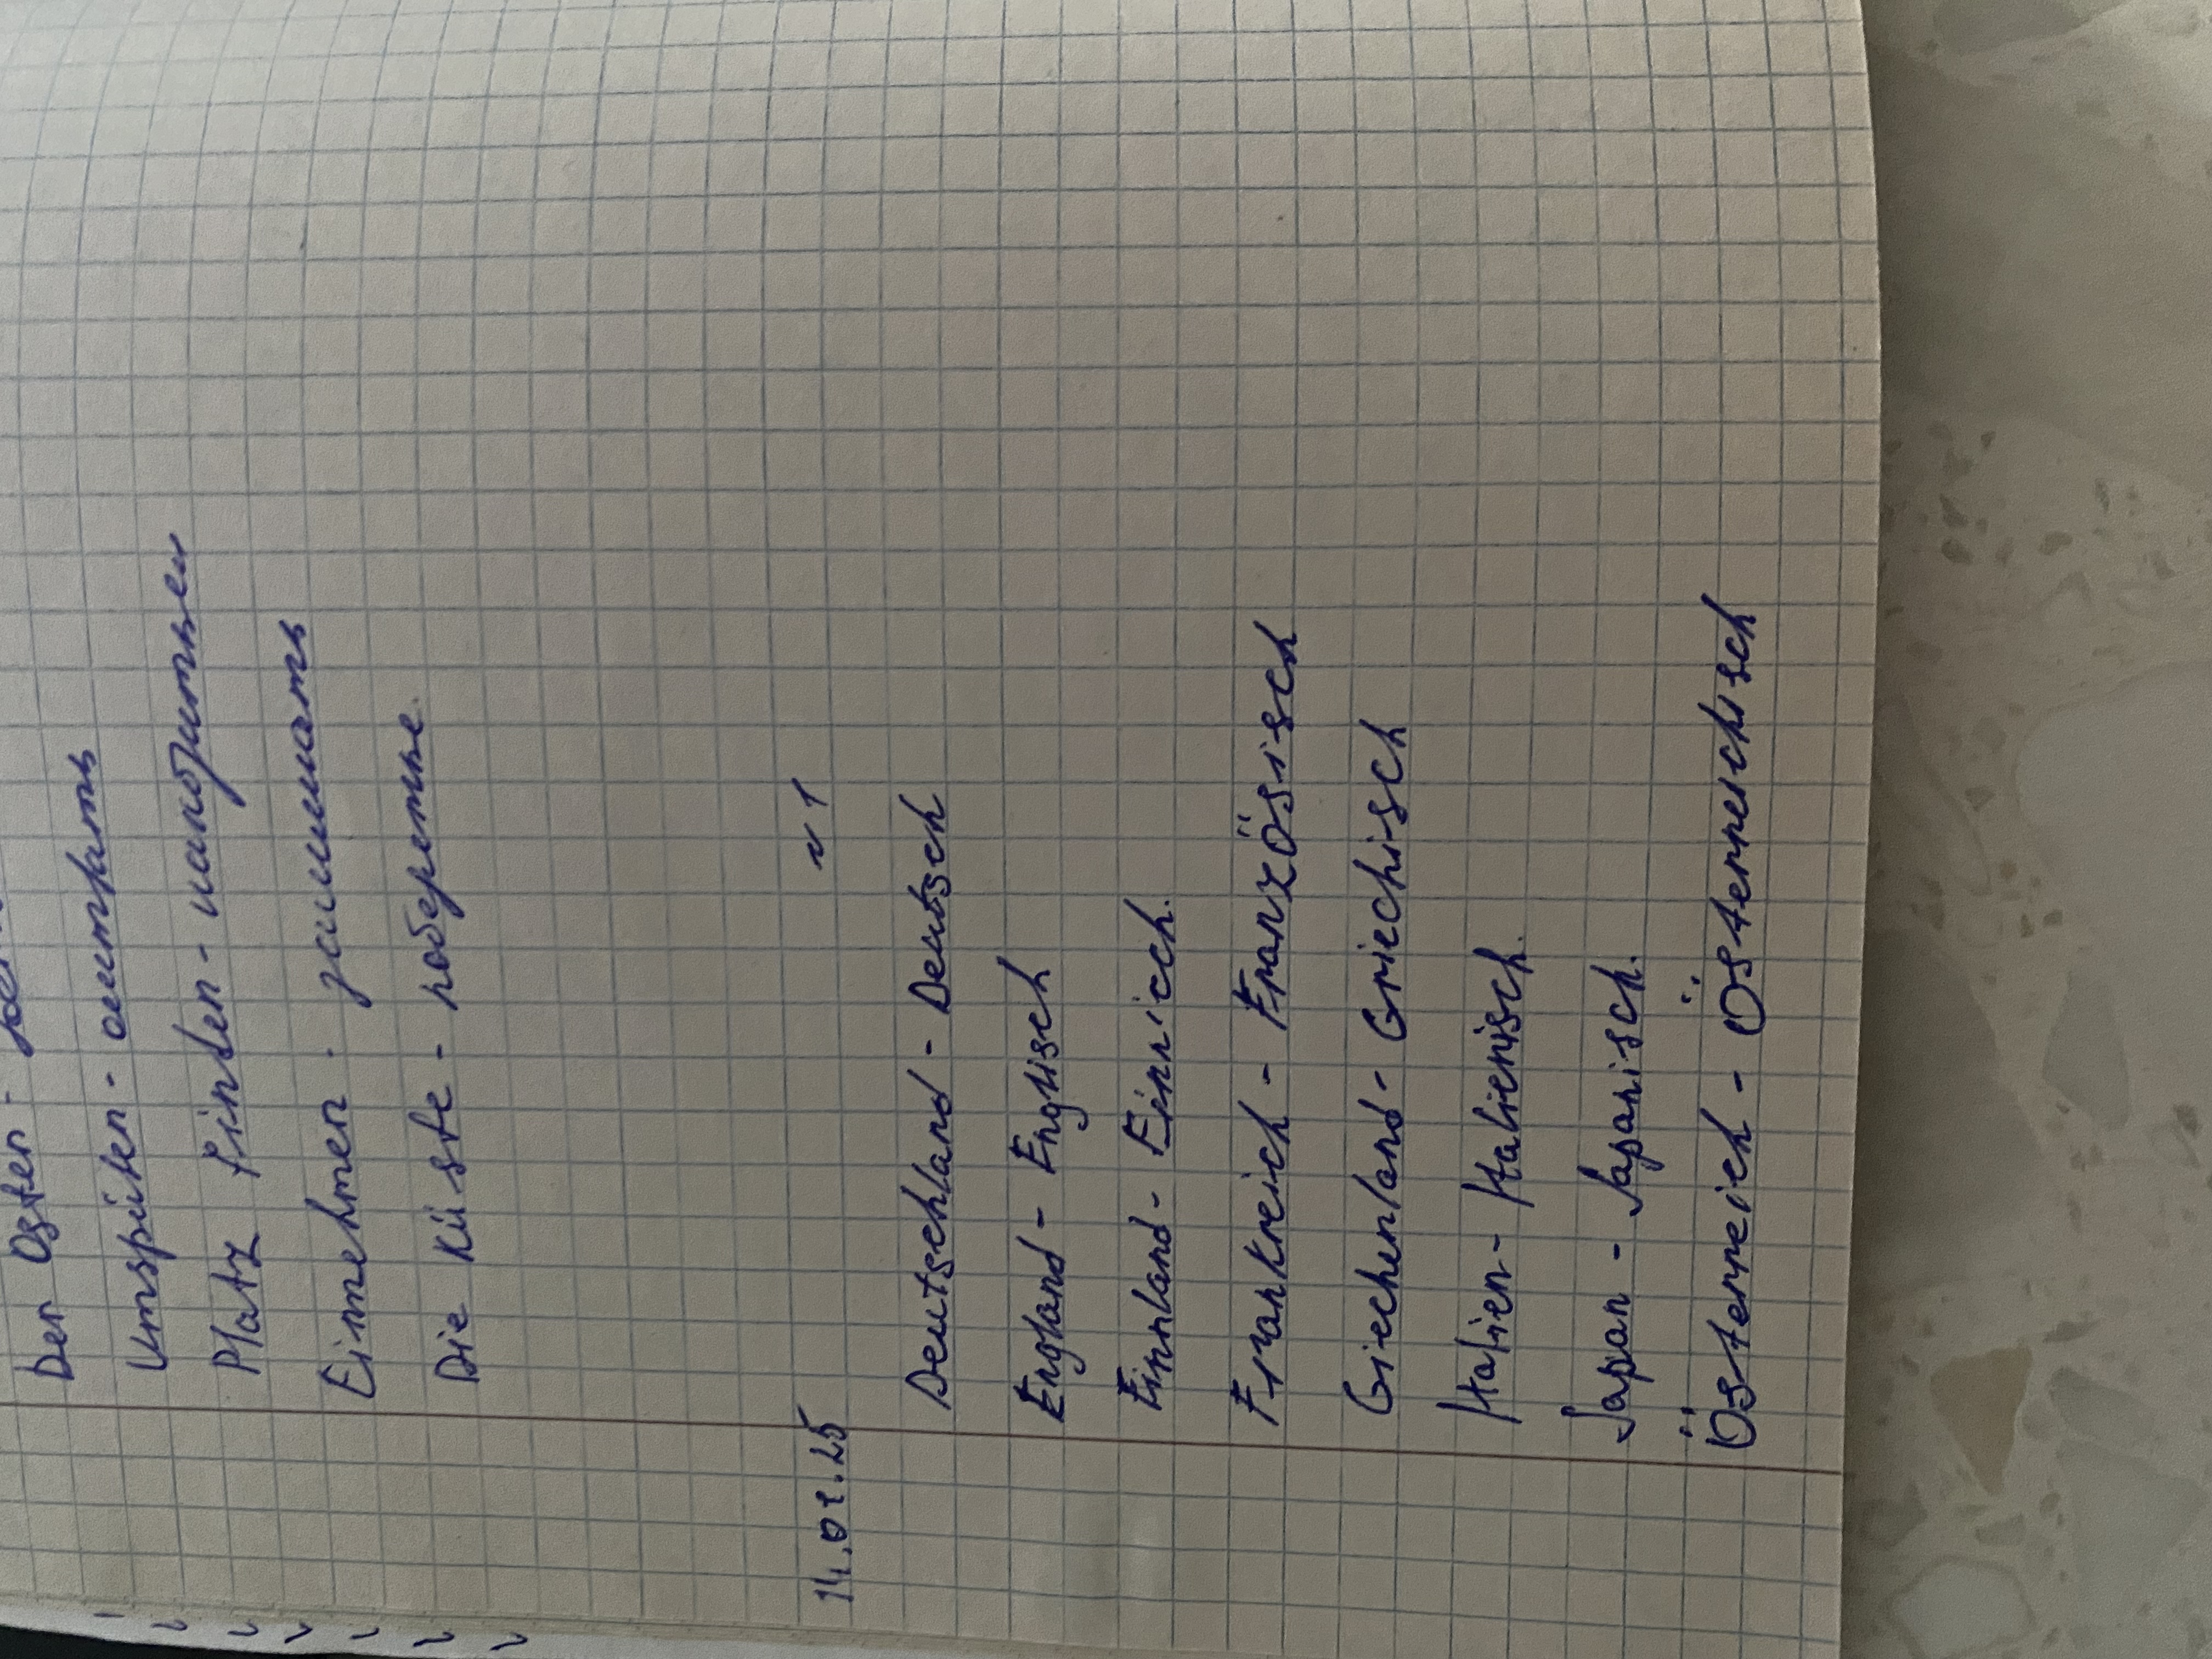 Der Osten -
Umspülen - омывать
Platz finden - находиться
Einnehmen - занимать
Die Küste - побережье.
14.02.25 n 1
Deutschland - Deutsch
England - Englisch
Finnland - Finnisch.
Frankreich - Französisch
Giechenland - Griechisch
Italien - Italienisch.
Japan - Japanisch.
Österreich - Österreichisch